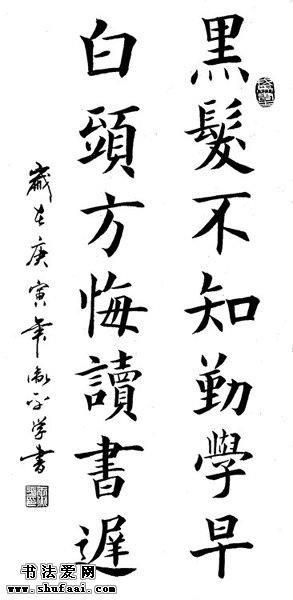 黑髮不知勤學早
白頭方悔讀書遲
歲在庚寅年
学書
书法爱网
www.shufaai.com